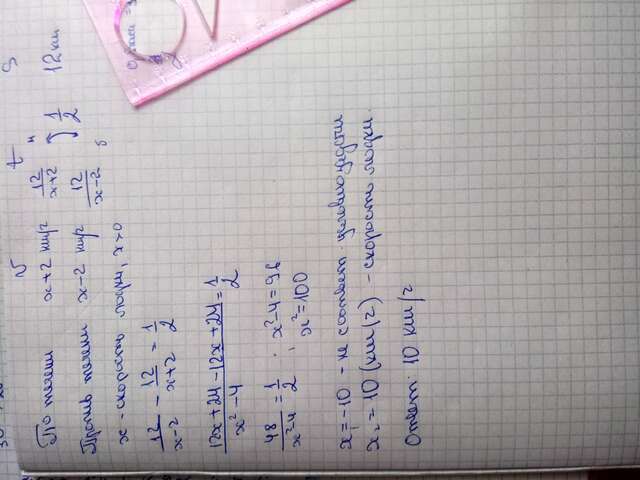 v t S
По течен x+2 км/ч 12/x+2 м } 1/2 12 км
Против течени x-2 км/ч 12/x-2 б
x - скорость лодки, x>0
12/x-2 - 12/x+2 = 1/2
12x+24-12x+24/x²-4 = 1/2
48/x²-4 = 1/2; x²-4=96
x²=100
x₁=-10 - не соответ. условию задачи
x₂=10 (км/ч) - скорость лодки.
Ответ: 10 км/ч